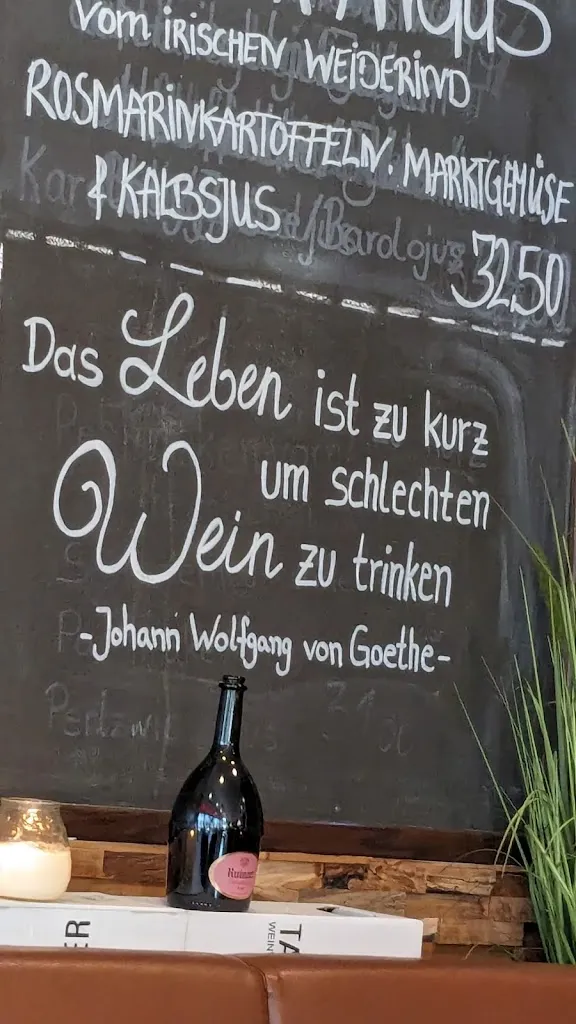 Vom IRISCHEN WEIDERIND
ROSMARINKARTOFFELN. MARKTGEMÜSE
& KALBSJUS
32.50
Das Leben ist zu kurz
um schlechten
Wein zu trinken
-Johann Wolfgang von Goethe-
Ruinart